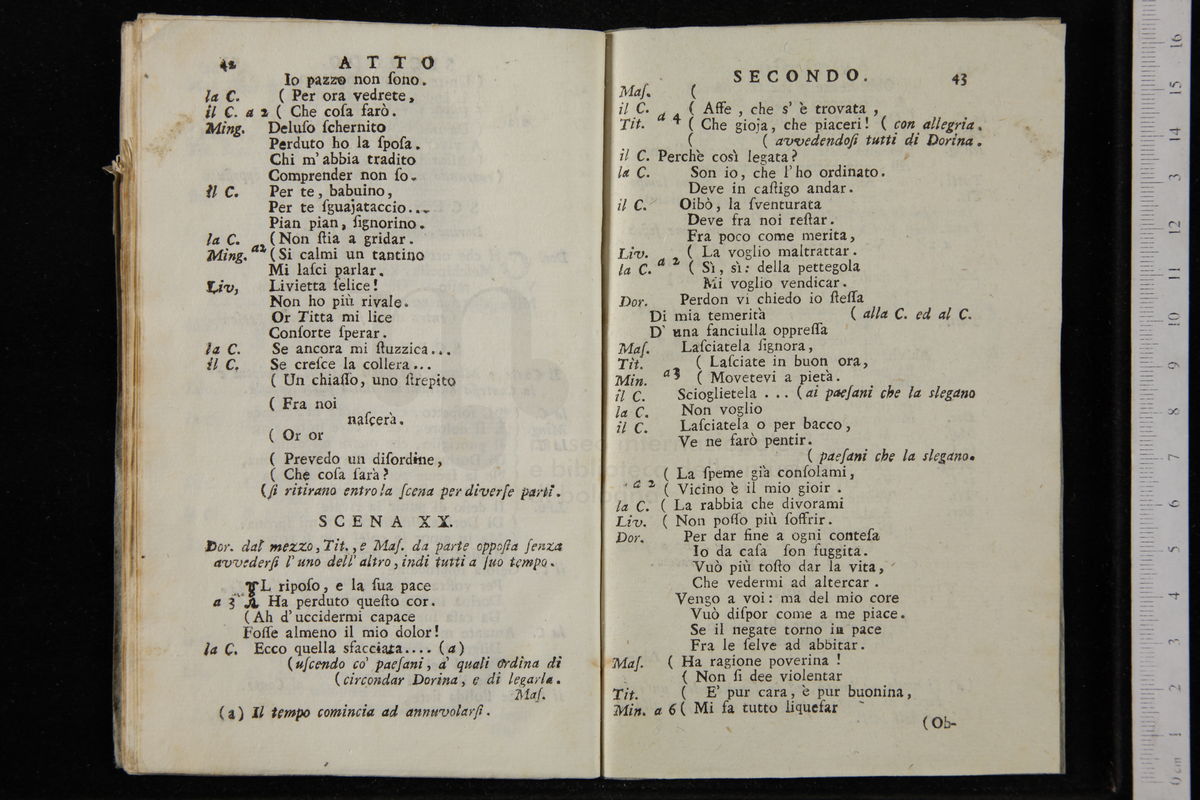 42 ATTO
Io pazzo non ſono.
la C. ( Per ora vedrete,
il C. a 2 ( Che coſa farò.
Ming. Deluſo ſchernito
Perduto ho la ſpoſa.
Chi m' abbia tradito
Comprender non ſo.
il C. Per te, babuino,
Per te ſguajataccio...
Pian pian, ſignorino.
la C. ( Non ſtia a gridar.
Ming. a2 ( Si calmi un tantino
Mi laſci parlar.
Liv, Livietta felice!
Non ho più rivale.
Or Titta mi lice
Conſorte ſperar.
la C. Se ancora mi ſtuzzica...
il C. Se creſce la collera...
( Un chiaſſo, uno ſtrepito
( Fra noi
naſcerà.
( Or or
( Prevedo un diſordine,
( Che coſa ſarà?
(ſi ritirano entro la ſcena per diverſe parti.
SCENA XX.
Dor. dal mezzo, Tit., e Maſ. da parte oppoſta ſenza
avvederſi l' uno dell' altro, indi tutti a ſuo tempo.
IL ripoſo, e la ſua pace
a 3 Ha perduto queſto cor.
( Ah d' uccidermi capace
Foſſe almeno il mio dolor!
la C. Ecco quella sfacciata.... (a)
(uſcendo co' paeſani, a' quali ordina di
(circondar Dorina, e di legarla.
Maſ.
(a) Il tempo comincia ad annuvolarſi.
SECONDO. 43
Maſ. (
il C. ( Affe, che s' è trovata,
Tit. a 4 ( Che gioja, che piaceri! ( con allegria.
( ( avvedendoſi tutti di Dorina.
il C. Perchè così legata?
la C. Son io, che l' ho ordinato.
Deve in caſtigo andar.
il C. Oibò, la ſventurata
Deve fra noi reſtar.
Fra poco come merita,
Liv. ( La voglio maltrattar.
la C. a 2 ( Sì, sì: della pettegola
Mi voglio vendicar.
Dor. Perdon vi chiedo io ſteſſa
Di mia temerità ( alla C. ed al C.
D' una fanciulla oppreſſa
Maſ. Laſciatela ſignora,
Tit. ( Laſciate in buon ora,
Min. a3 ( Movetevi a pietà.
il C. Scioglietela ... (ai paeſani che la slegano
la C. Non voglio
il C. Laſciatela o per bacco,
Ve ne farò pentir.
( paeſani che la slegano.
( La ſpeme già conſolami,
a 2 ( Vicino è il mio gioir.
la C. ( La rabbia che divorami
Liv. ( Non poſſo più ſoffrir.
Dor. Per dar fine a ogni conteſa
Io da caſa ſon fuggita.
Vuò più toſto dar la vita,
Che vedermi ad altercar.
Vengo a voi: ma del mio core
Vuò diſpor come a me piace.
Se il negate torno in pace
Fra le ſelve ad abbitar.
Maſ. ( Ha ragione poverina!
( Non ſi dee violentar
Tit. ( E' pur cara, è pur buonina,
Min. a 6 ( Mi fa tutto liquefar
(Ob-